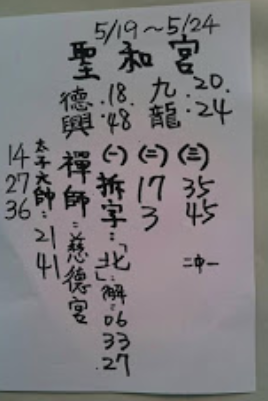 5/19～5/24
聖和宮
九龍:20.24
德興.18.48
(一)(二)(三)
拆字:「北」解=06 33 27
17 3
35 45
二中一
禪師=慈德宮
太子大師=21 41
14 27 36